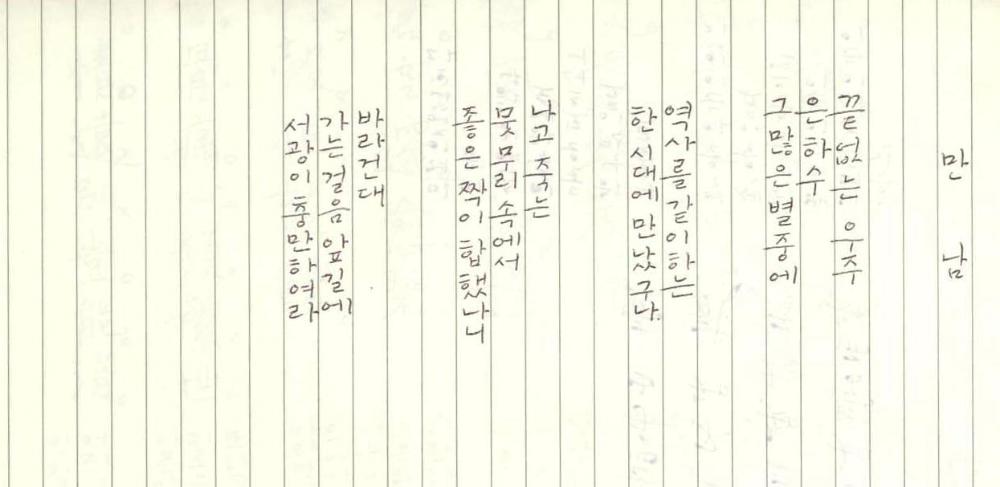 만 남
끝없는 우주
은하수
그 많은 별중에
역사를 같이하는
한 시대에 만났구나.
나고 죽는
뭇 무리 속에서
좋은 짝이 합했나니
바라건대
가는 걸음 앞길에
서광이 충만하여라